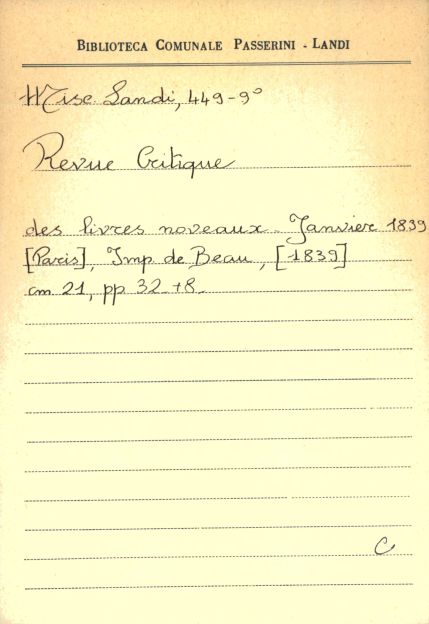 BIBLIOTECA COMUNALE PASSERINI - LANDI
Misc. Landi, 449-9°
Revue Critique
des livres noveaux - Janvier 1839
[Paris], Imp de Beau, [1839]
cm 21, pp 32 +8
C